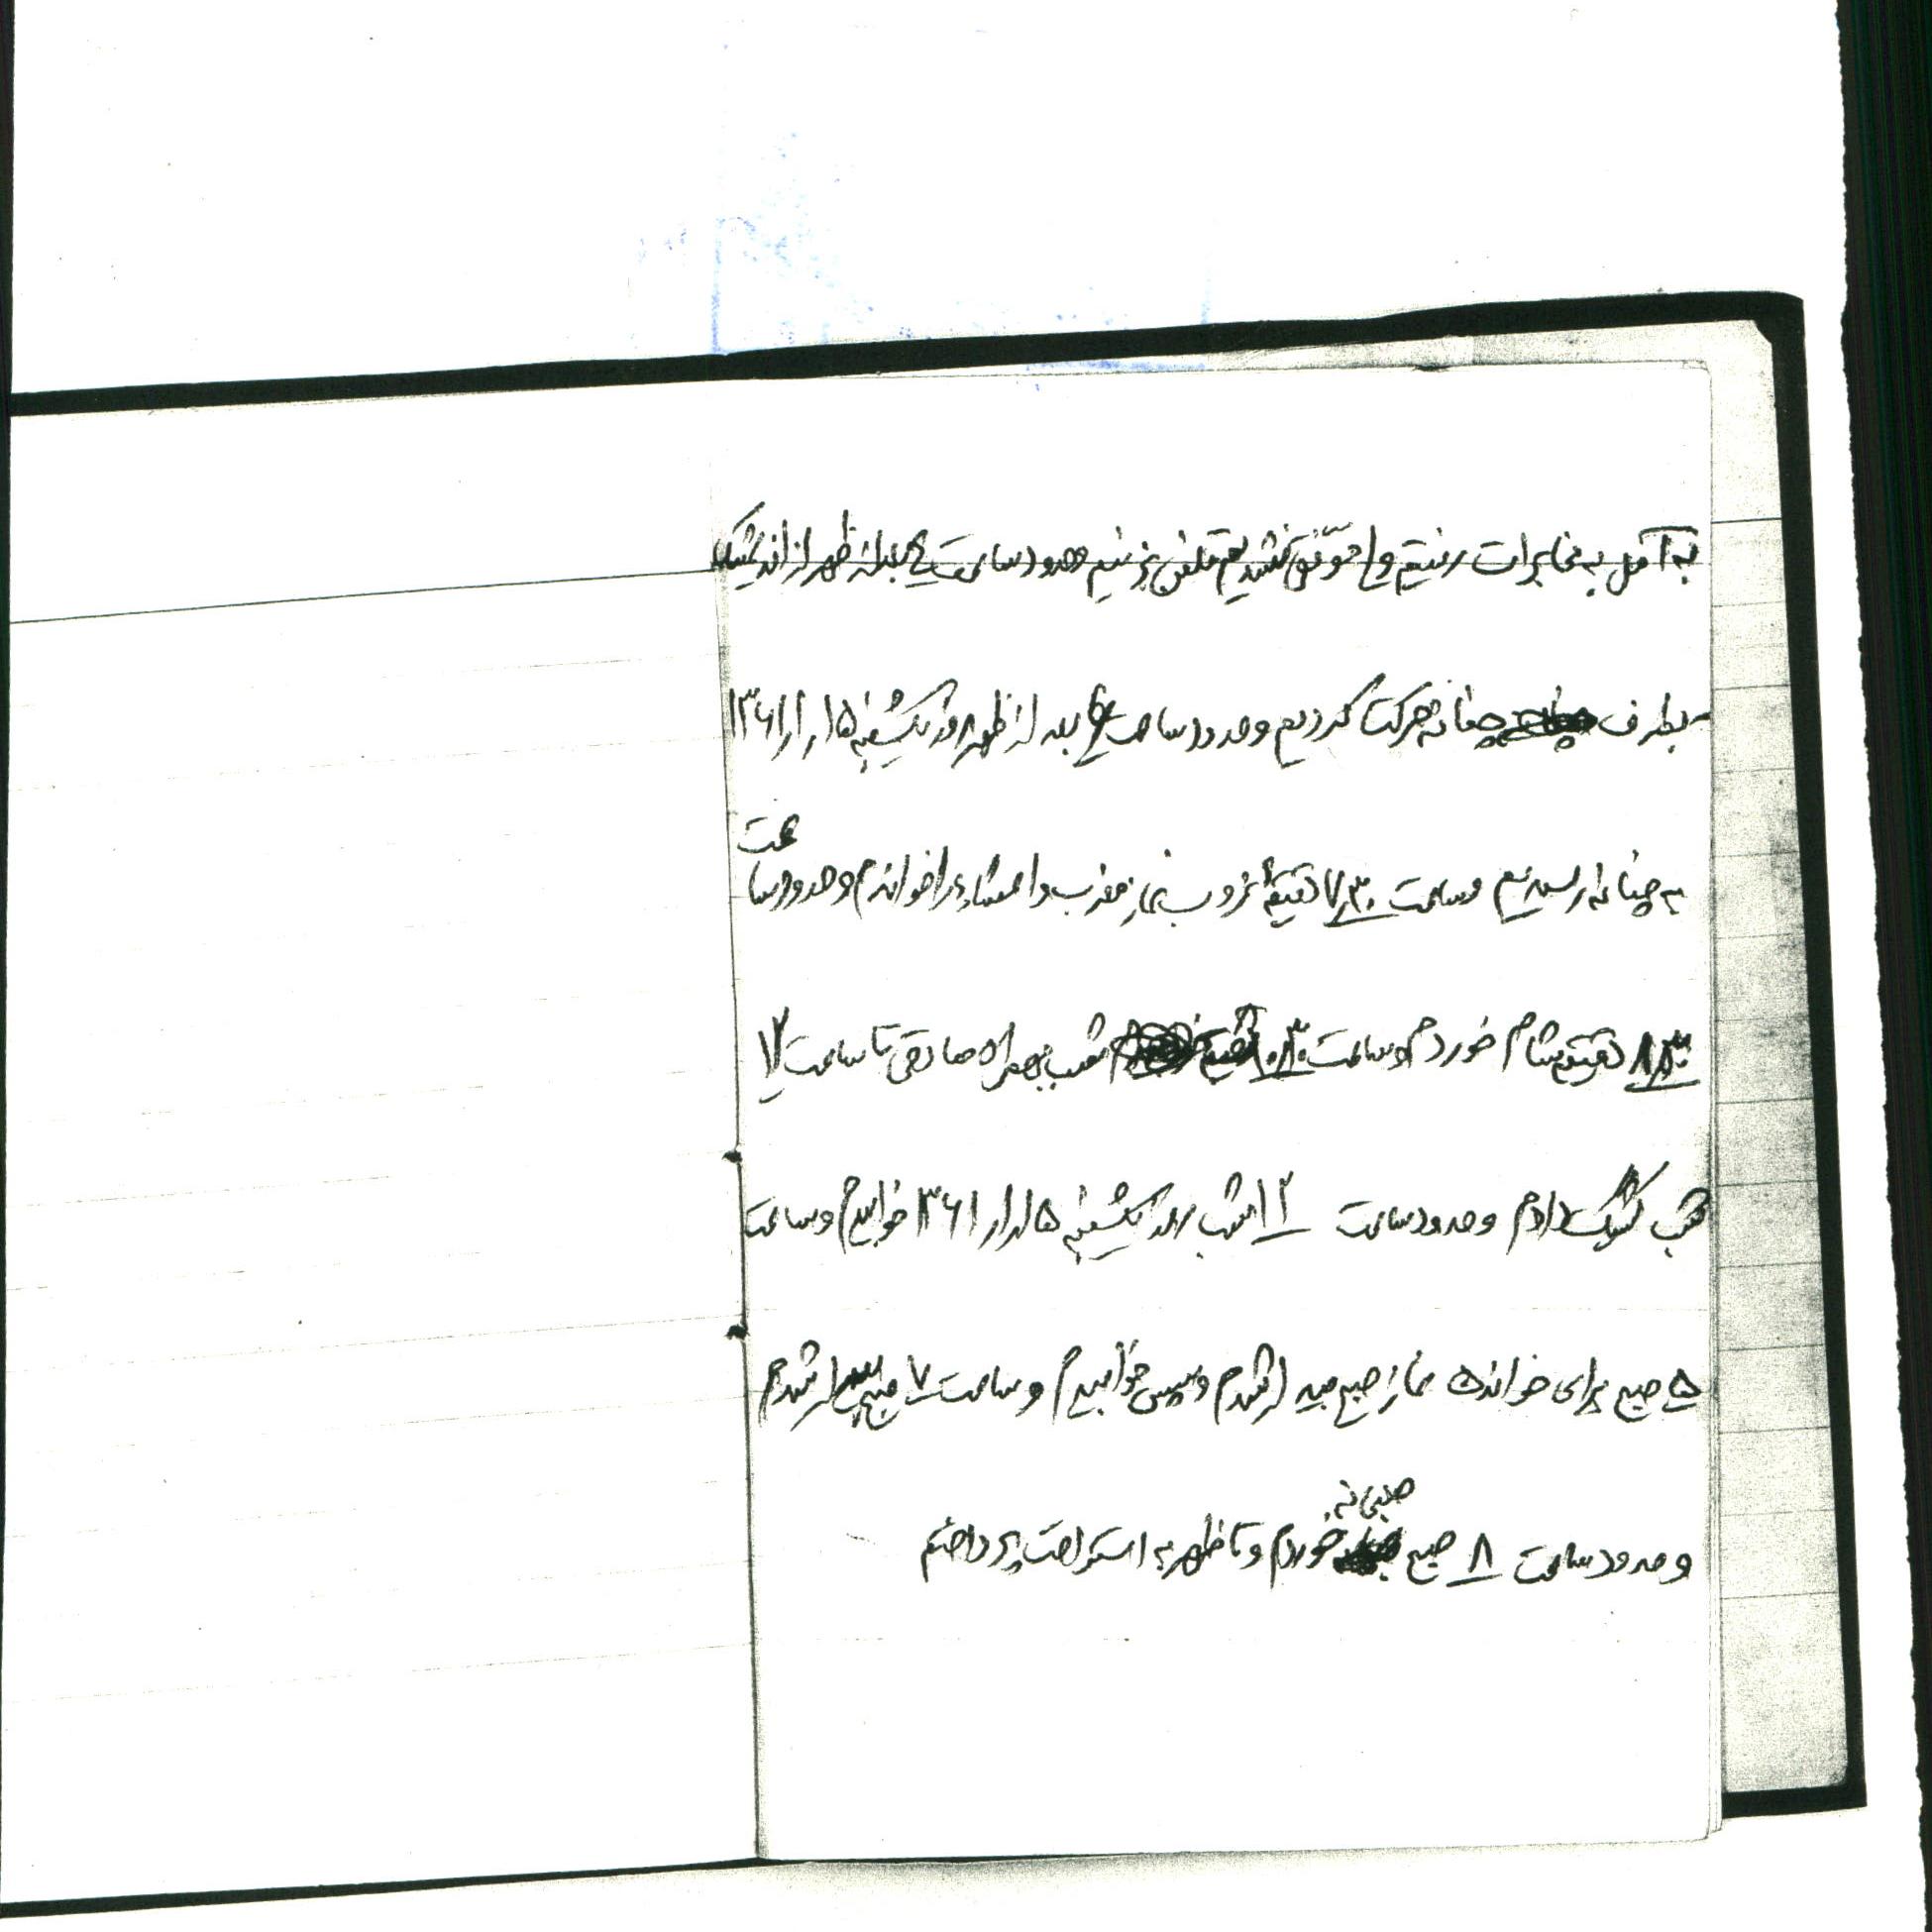 به آمل به مخابرات رفتیم ولی موفق نشدیم تلفن بزنیم حدود ساعت ۴ بعد از ظهر از اندیمشک
بطرف چنانه حرکت کردیم و حدود ساعت ۶ بعد از ظهر روز یکشنبه ۱۳۶۱/۱/۱۵
به چنانه رسیدیم و ساعت ۷/۳۰ دقیقه غروب نماز مغرب و اعشاء را خواندم و حدود ساعت
۸/۳۰ دقیقه شام خوردم و ساعت ۱۰/۳۰ شب بهمراه صادقی تا ساعت ۱۲
شب کشیک دادم و حدود ساعت ۱۲ شب روز یکشنبه ۱۳۶۱/۱/۱۵ خوابیدم و ساعت
۵ صبح برای خواندن نماز صبح بیدار شدم و سپس خوابیدم و ساعت ۷ صبح بیدار شدم
و حدود ساعت ۸ صبح صبحانه خوردم و تا ظهر به استراحت پرداختم